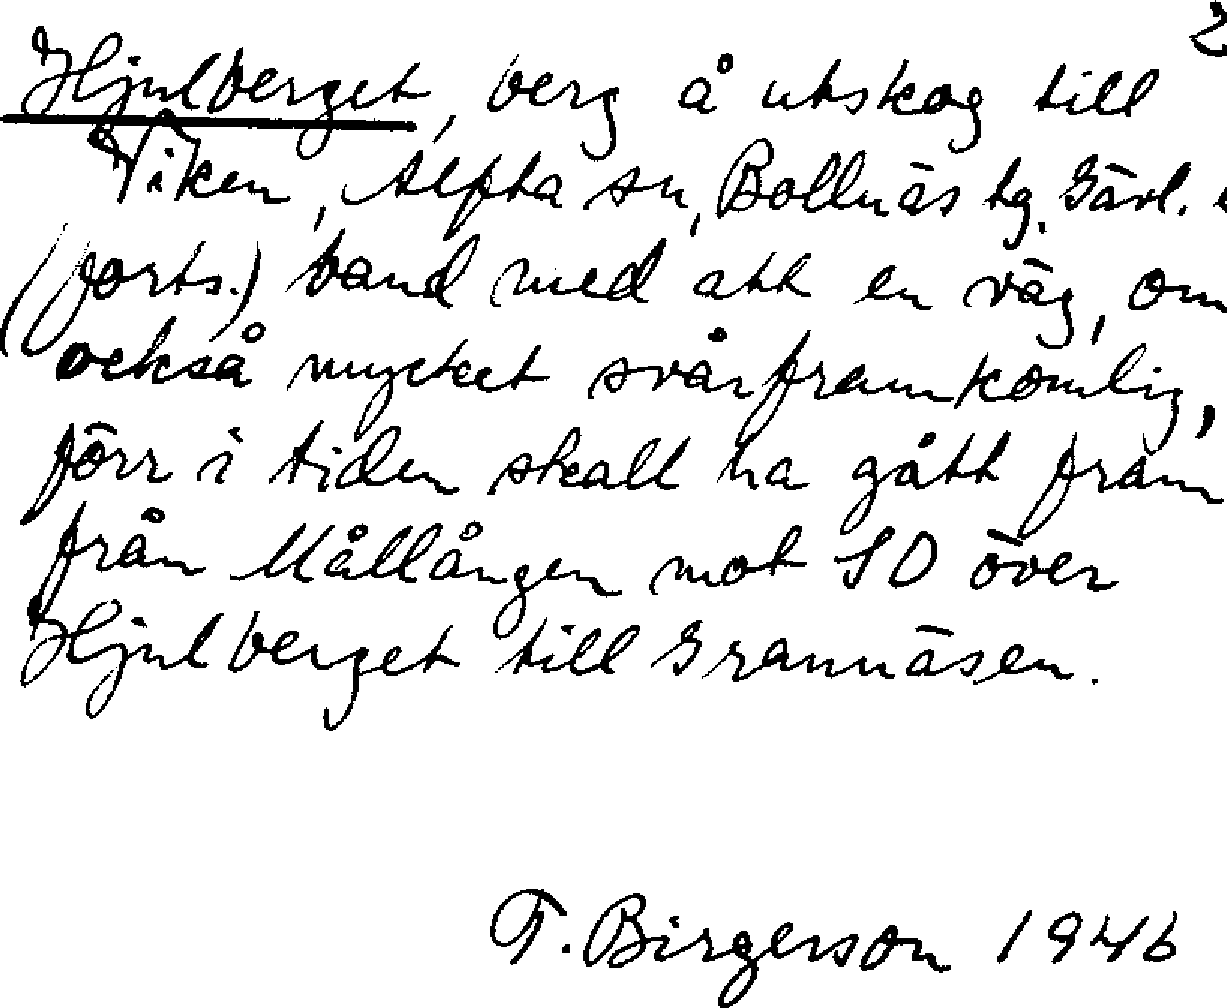 2
Hjulberget, berg å utskog till
Viken, Alfta sn, Bollnäs tg. Gävl.
(forts.) band med att en väg, om
också mycket svårframkomlig,
förr i tiden skall ha gått fram
från Mållången mot SO över
Hjulberget till Grannäsen.
F. Birgerson 1946